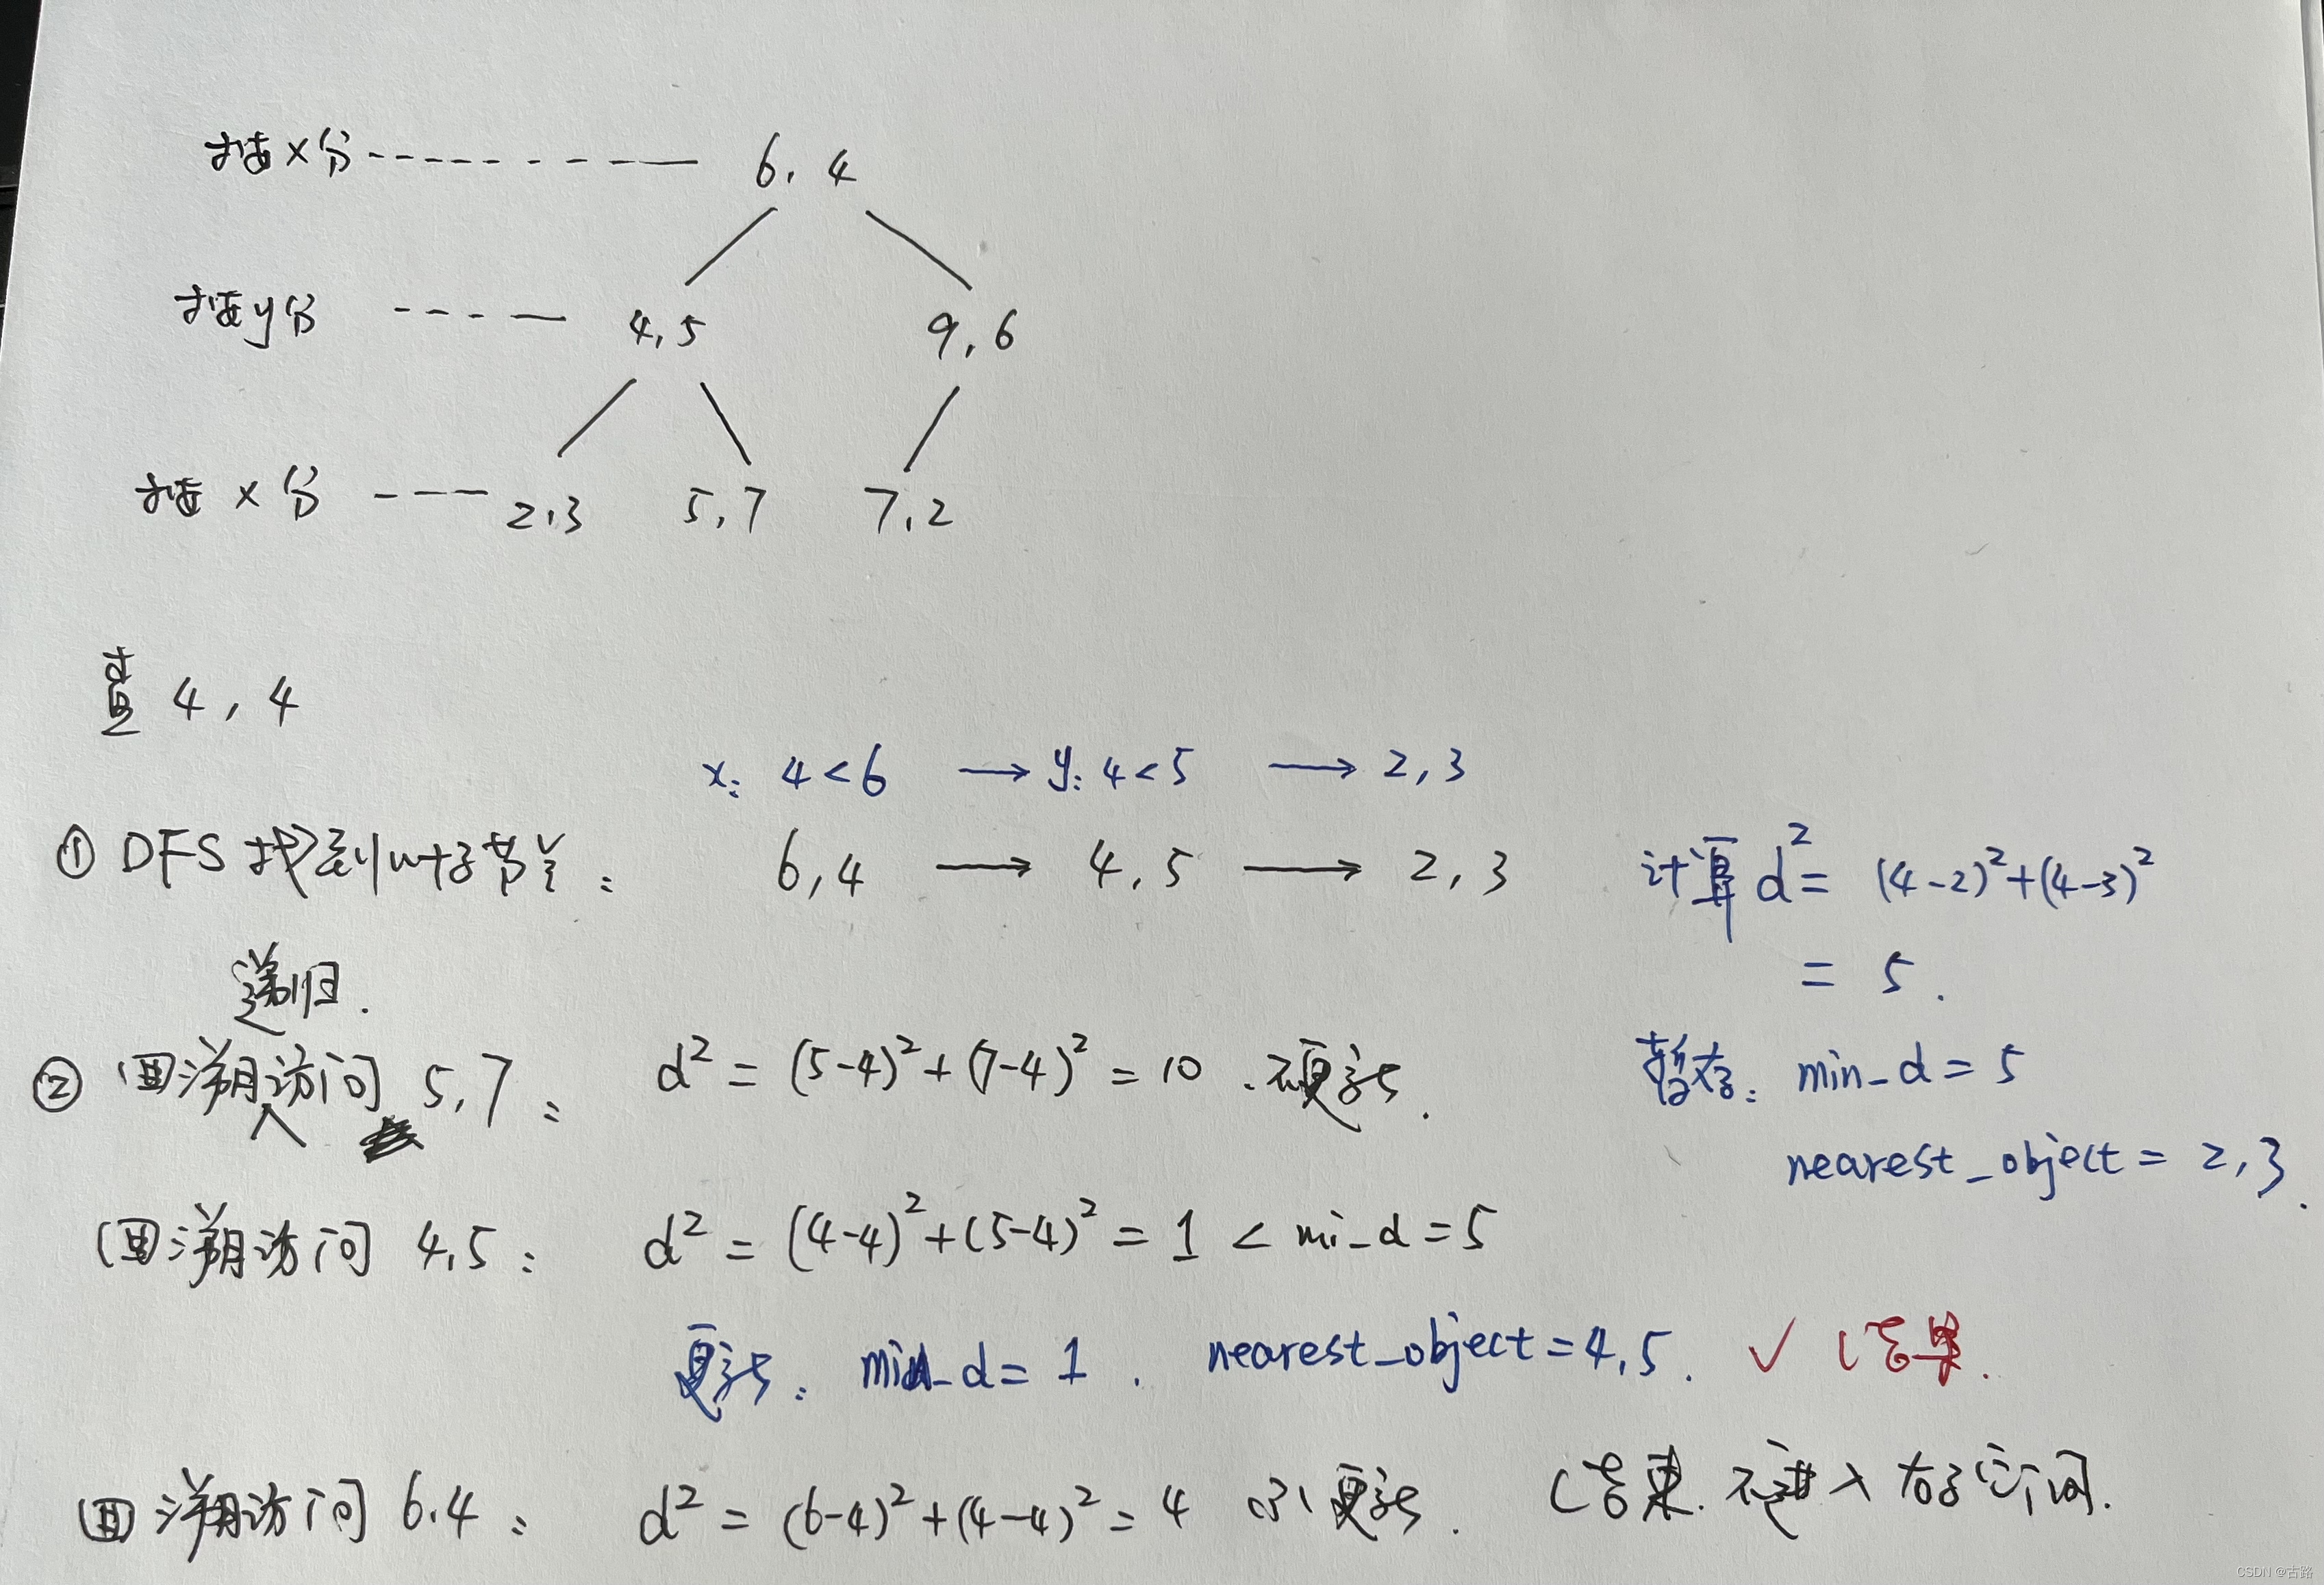 按x分 6,4
按y分 4,5 9,6
按 x 分 2,3 5,7 7,2
查 4,4
x: 4<6 → y: 4<5 → 2,3
① DFS 找到叶子节点: 6,4 → 4,5 → 2,3
计算 d²= (4-2)²+(4-3)²
= 5.
递归.
② 回溯访问 5,7: d² = (5-4)²+(7-4)² = 10 . 不更新.
暂存: min_d = 5
nearest_object = 2,3.
回溯访问 4,5: d² = (4-4)²+(5-4)² = 1 < mi_d = 5
更新: min_d = 1. nearest_object = 4,5. ✓ 结果.
回溯访问 6.4: d² = (6-4)²+(4-4)² = 4 更新. 结束. 不进入右子访问.
CSDN @古路